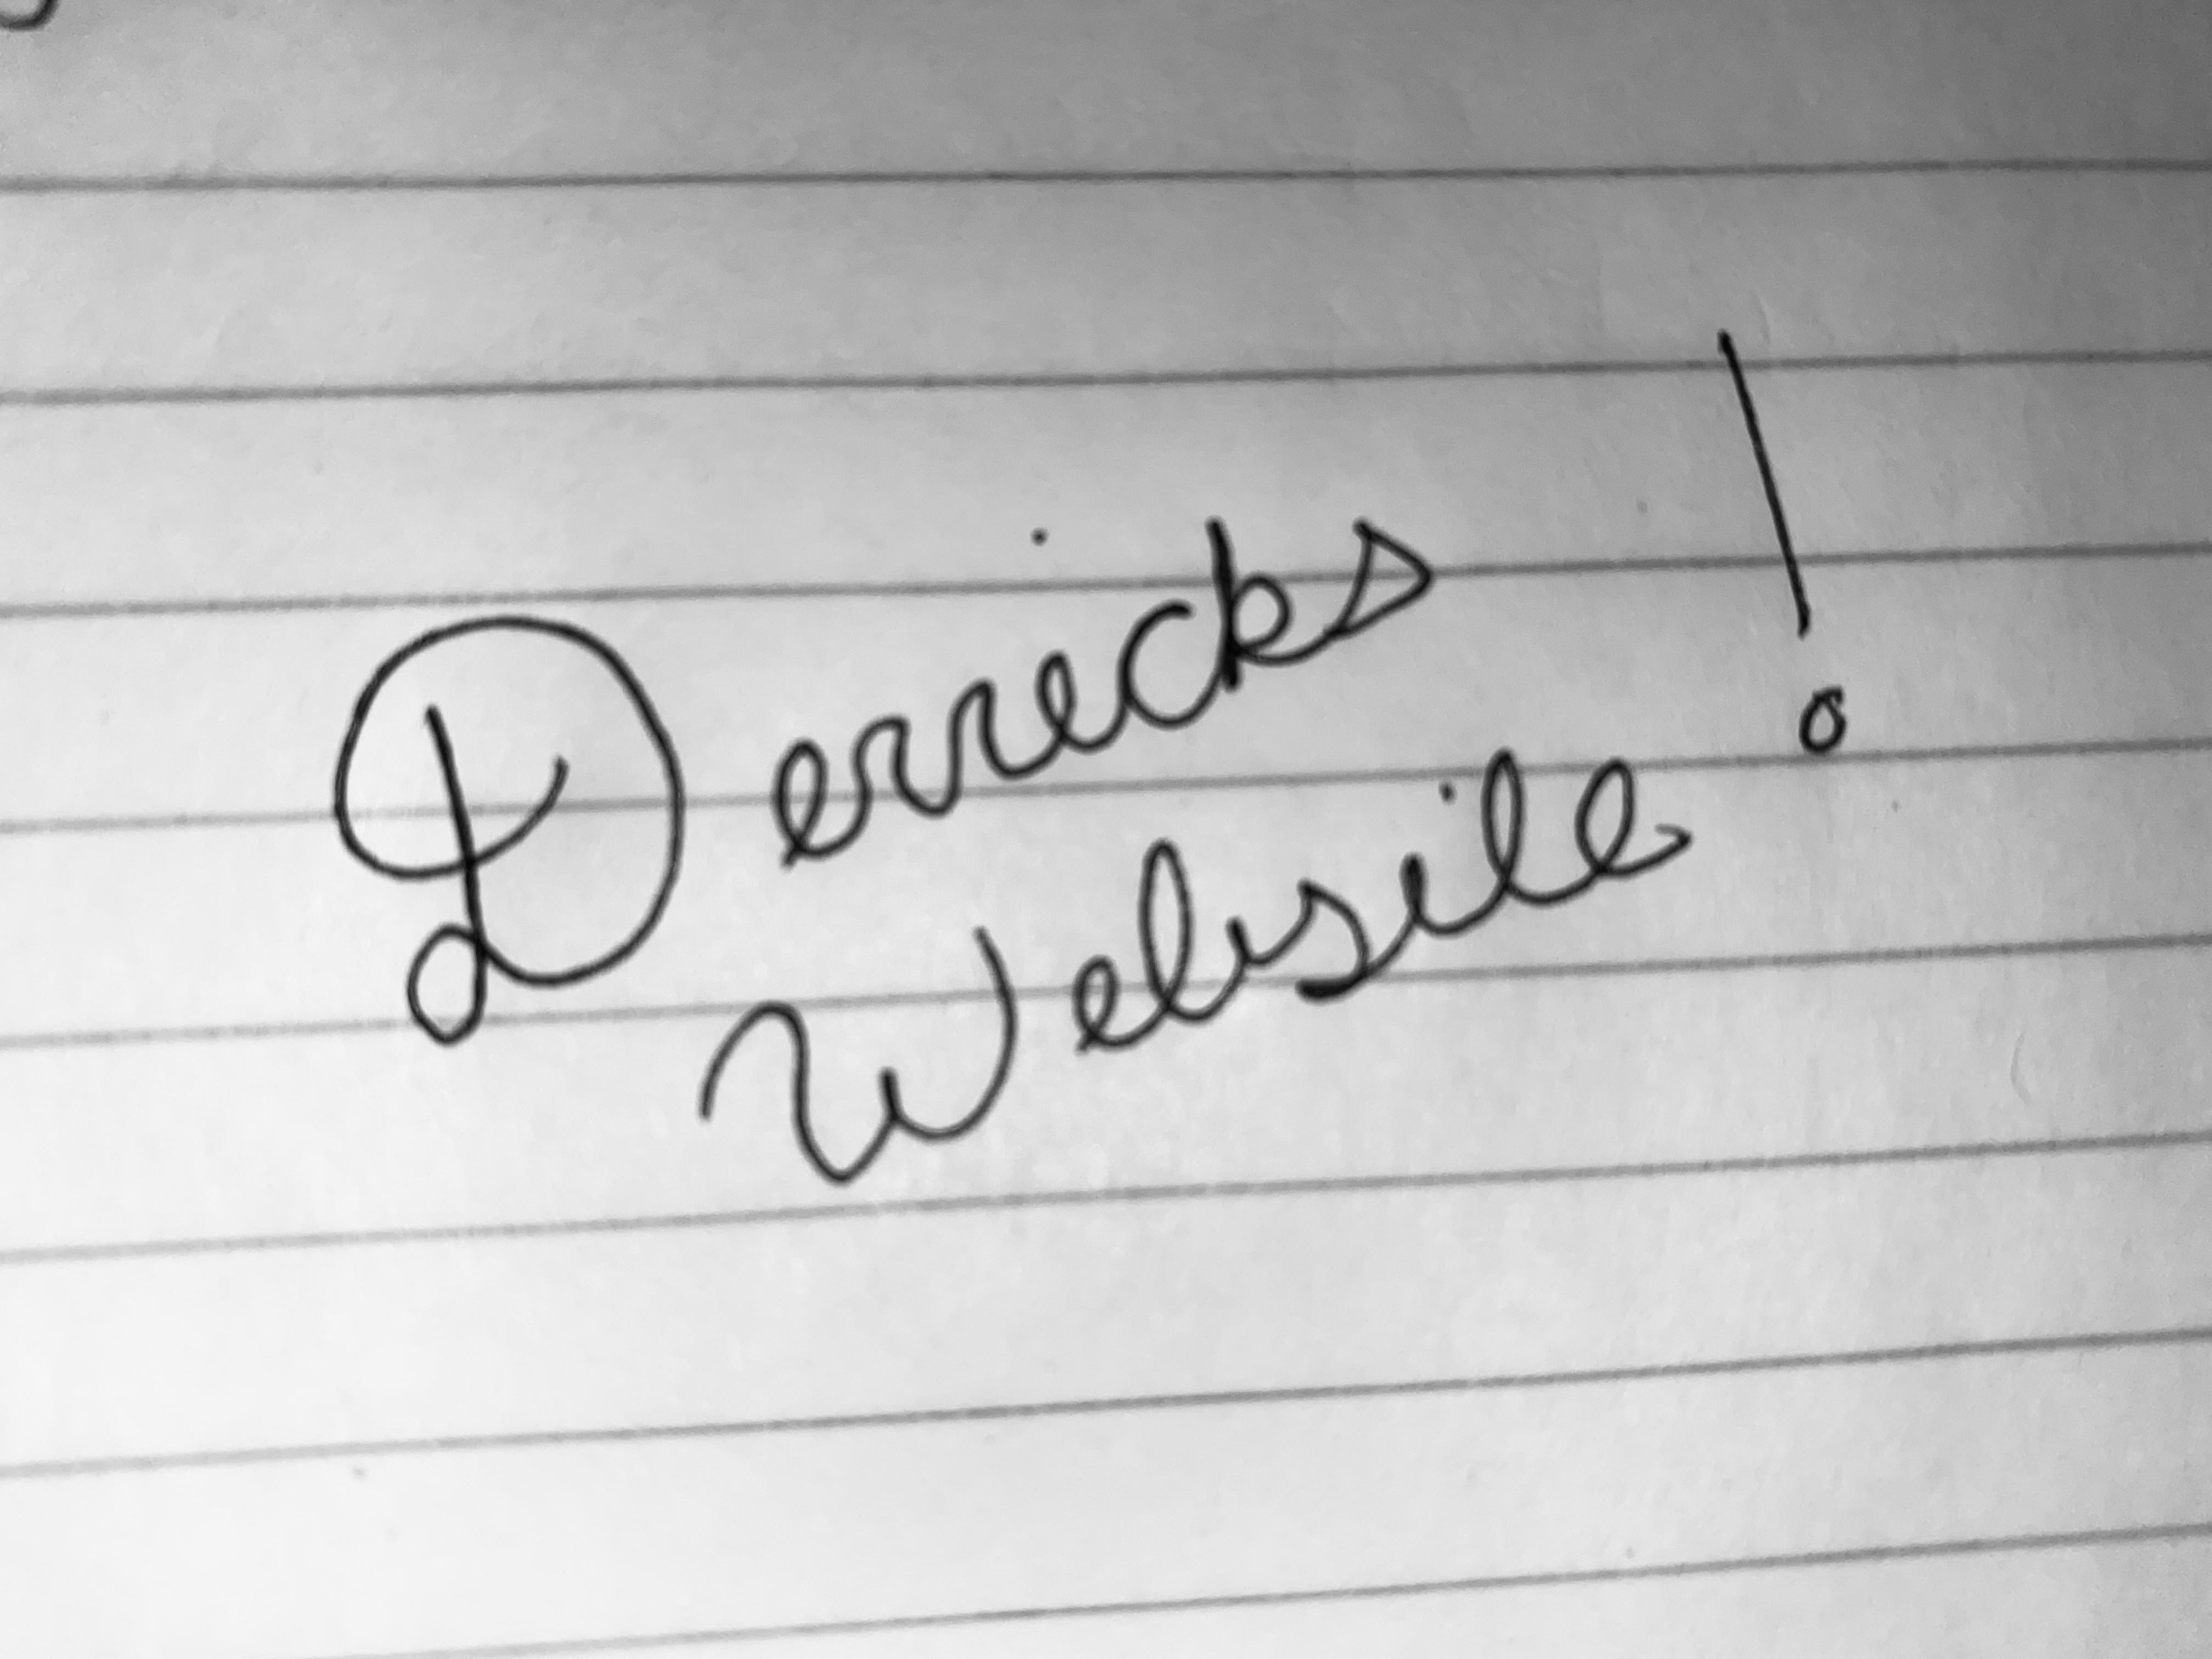 Derricks
Website!